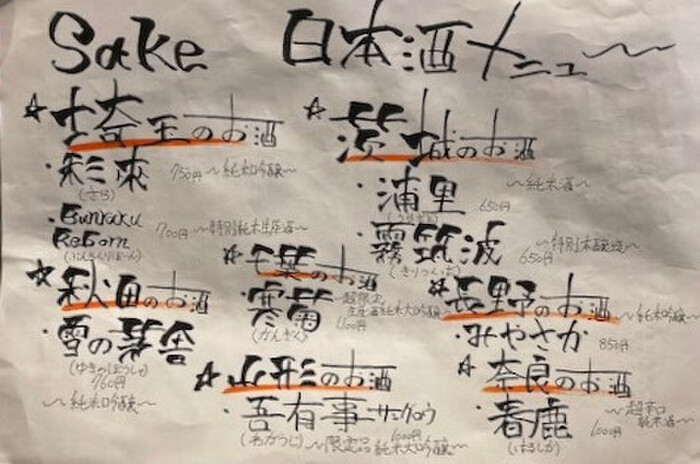 Sake 日本酒メニュー
☆埼玉のお酒
・彩來 750円 ～純米吟醸～
(さら)
・Bunraku Reborn 700円 ～特別純米生原酒～
(ぶんらくりぼーん)
☆秋田のお酒
・雪の茅舎
(ゆきのぼうしゃ)
760円
～純米吟醸～
☆茨城のお酒
・浦里 650円 ～純米酒～
・霧筑波 650円
(きりつくば)
☆千葉のお酒
・寒菊 超限定
純米大吟醸
1100円
(かんぎく)
☆長野のお酒 ～純米吟醸～
・みやさか 850円
☆山形のお酒
・吾有事 サングロウ 1000円
(わがうじ) ～限定品 純米大吟醸～
☆奈良のお酒
・春鹿 ～超辛口
純米酒～
(はるしか)